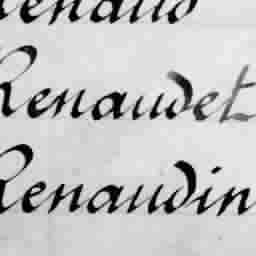 Renaud
Renaudet
Renaudin